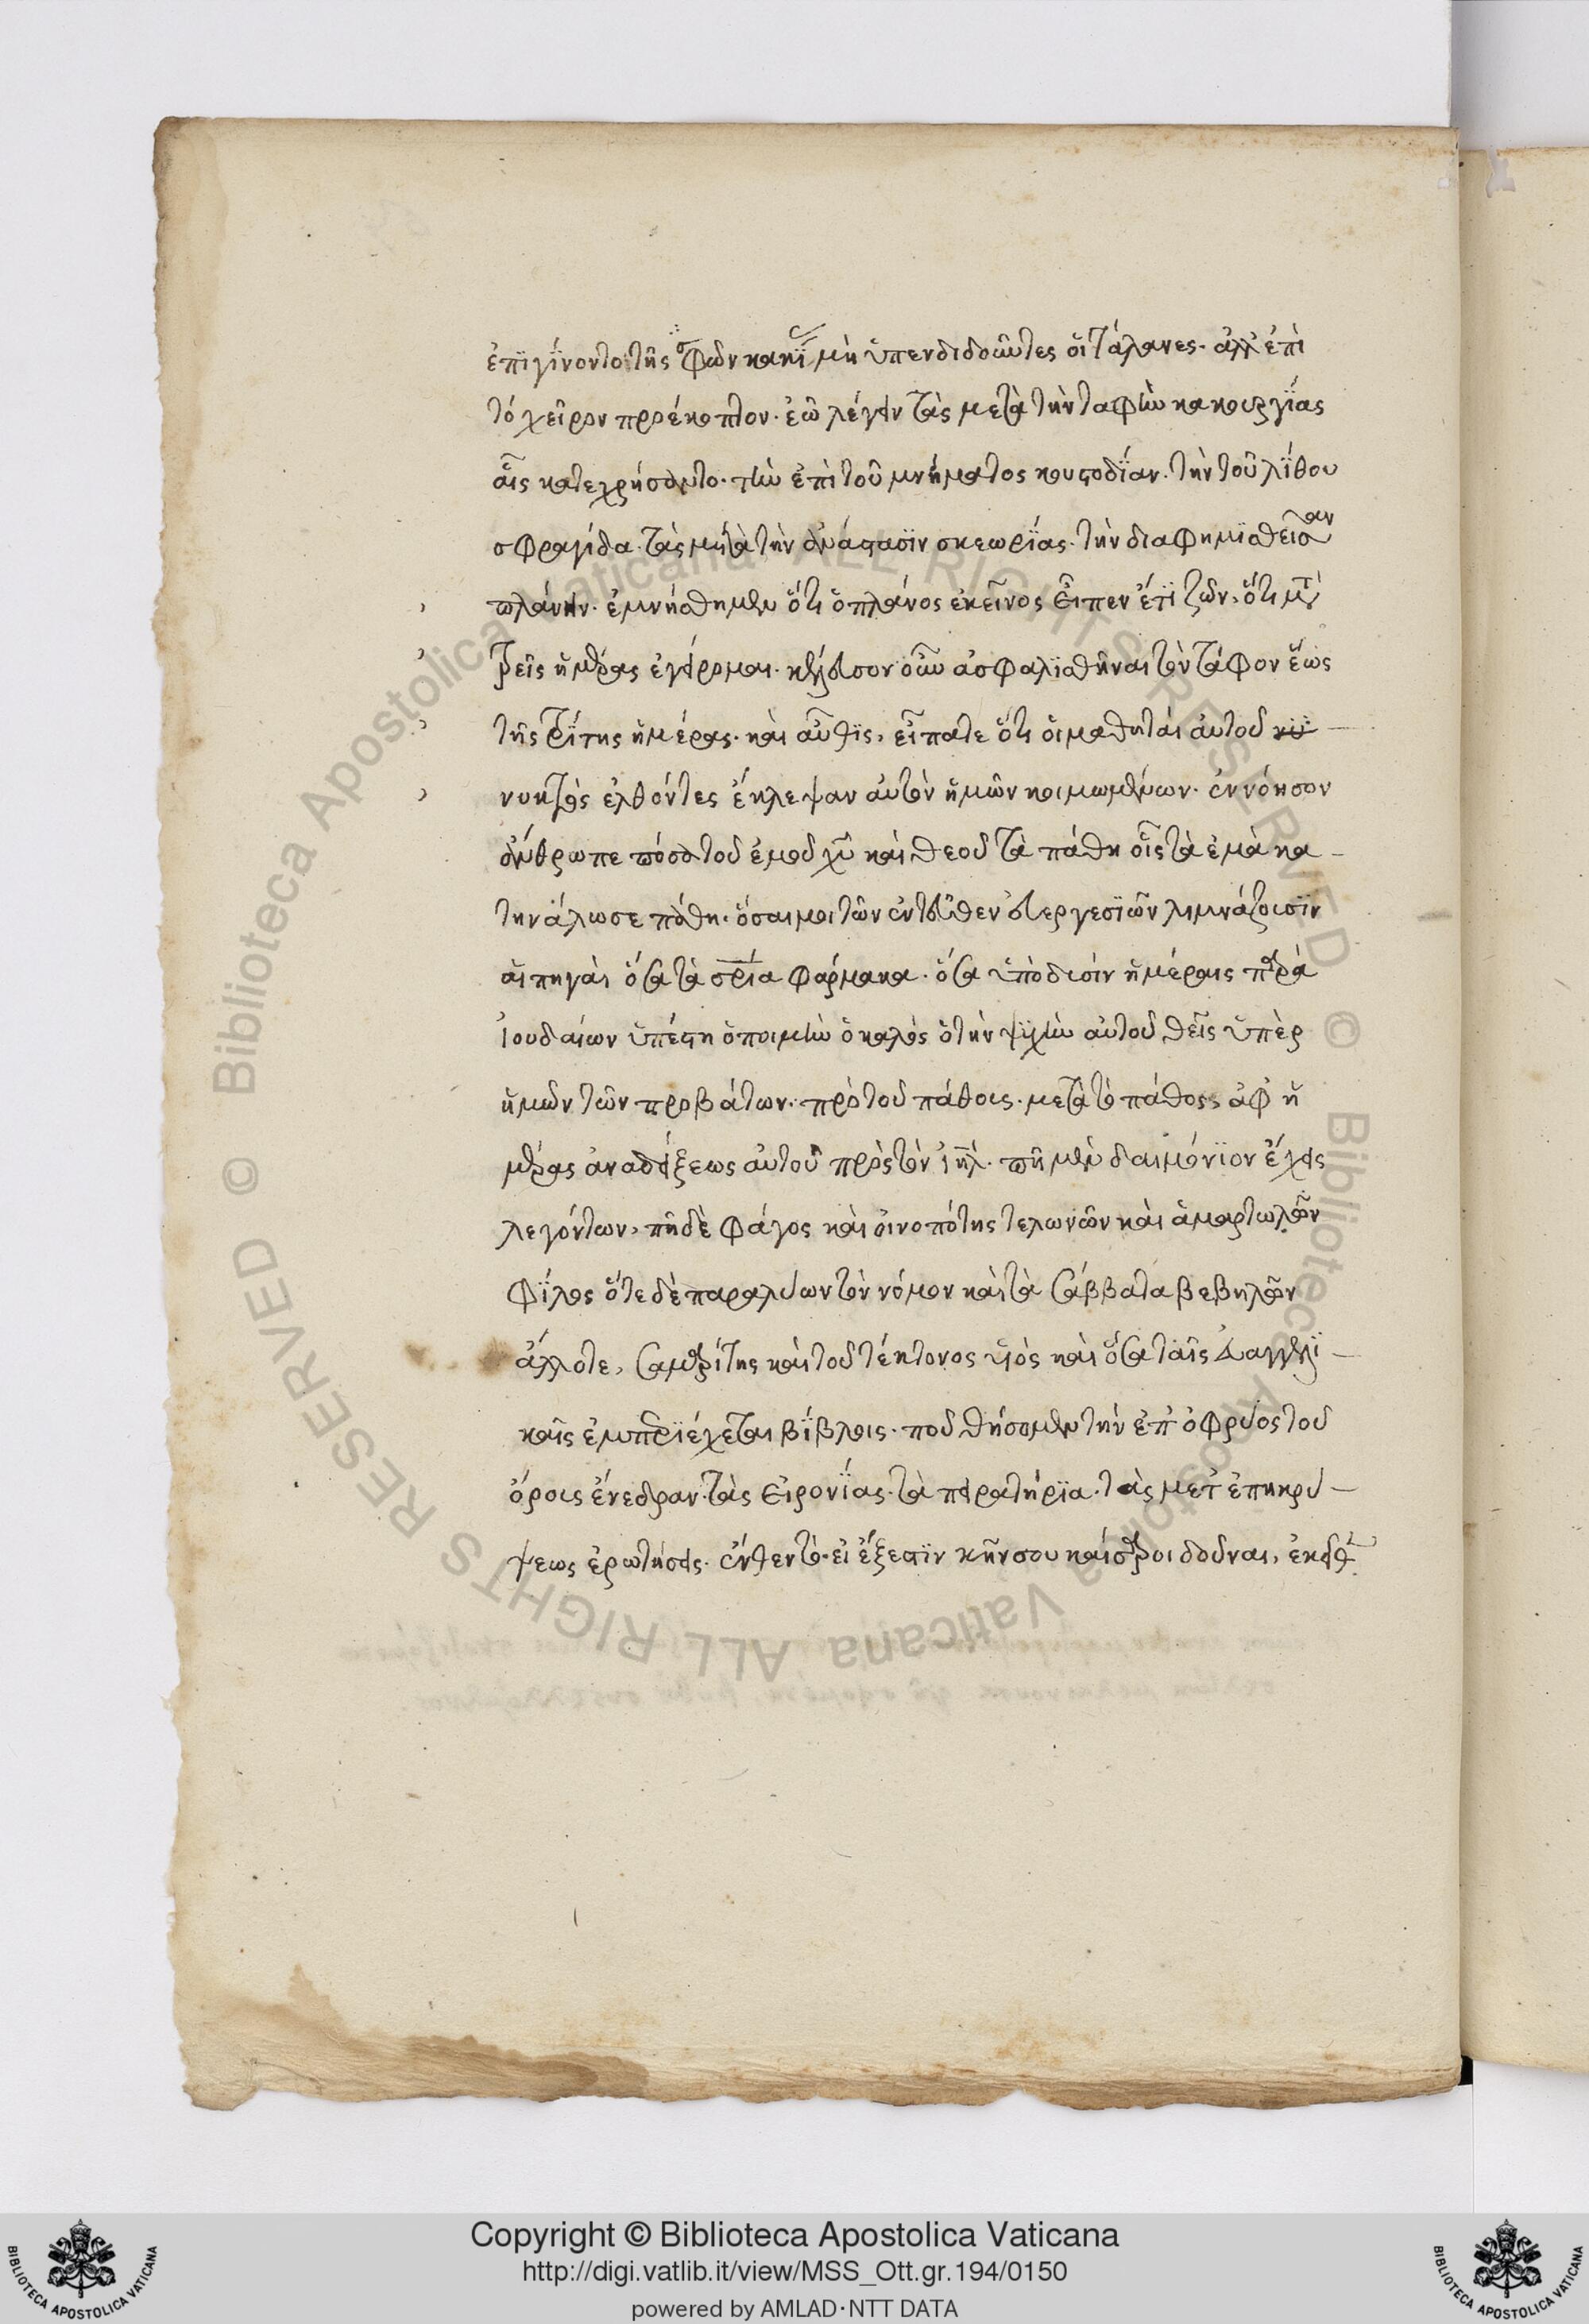 ἐπϊγίνοντο τῆς σφῶν κακϊ μὴ ὑπενδιδοῦντες οἱ τάλανες· ἀλλ' ἐπὶ
τὸ χεῖρον προέκοπτον· ἐῶ λέγειν τὰς μετὰ τὴν ταφὴν κακουργΐας
αἷς κατεχρήσαντο· τὴν ἐπὶ τοῦ μνήματος κουστοδΐαν· τὴν τοῦ λΐθου
σφραγίδα· τὰς μετὰ τὴν ἀνάστασϊν σκεωρΐας· τὴν διαφημϊσθεῖσαν
πλάνην· ἐμνήσθημεν ὅτι ὁ πλάνος ἐκεῖνος εἶπεν ἔτϊ ζῶν, ὅτι μετὰ
τρεῖς ἡμέρας ἐγείρομαι· κέλευσον οὖν ἀσφαλϊσθῆναι τὸν τάφον ἕως
τῆς τρΐτης ἡμέρας· καὶ αὖθϊς, εἴπατε ὅτι οἱ μαθηταὶ αὐτοῦ
νυκτὸς ἐλθόντες ἔκλεψαν αὐτὸν ἡμῶν κοιμωμένων· ἐννόησον
ἄνθρωπε πόσα τοῦ ἐμοῦ χῦ καὶ θεοῦ τὰ πάθη οἷς τὰ ἐμὰ κα-
τηνάλωσε πάθη· ὅσαι μοι τῶν ἐντεῦθεν εὐεργεσϊῶν λιμνάζουσϊν
αἱ πηγαὶ ὅσα τὰ σρϊα φάρμακα· ὅσα ὑπὸ δυσὶν ἡμέραις παρὰ
ἰουδαίων ὑπέστη ὁ ποιμὴν ὁ καλὸς ὁ τὴν ψϋχὴν αὐτοῦ θεὶς ὑπὲρ
ἡμῶν τῶν προβάτων· πρὸ τοῦ πάθους· μετὰ τὸ πάθος, ἀφ' ἡ
μέρας ἀναδείξεως αὐτοῦ πρὸς τὸν ιηλ· πῆ μὲν δαιμόνϊον ἔχεις
λεγόντων, πῆ δὲ φάγος καὶ οἰνοπότης τελωνῶν καὶ ἁμαρτωλῶν
φϊλος ὅτε δὲ παραλύων τὸν νόμον καὶ τὰ σάββατα βεβηλῶν
ἄλλοτε, σαμαρείτης καὶ τοῦ τέκτονος υἱὸς καὶ ὅσα ταῖς εὐαγγελϊ-
καῖς ἐμπερϊέχεται βΐβλοις· ποῦ θήσομεν τὴν ἐπ' ὀφρύος τοῦ
ὄρους ἐνέδραν· τὰς εἰρονΐας· τὰ πειρατήρϊα· τὰς μετ' ἐπικρύ-
ψεως ἐρωτήσεις· ἔνθεν τὸ· εἰ ἔξεστϊν κῆνσον καίσαρι δοῦναι, ἐκεῖθ
Copyright © Biblioteca Apostolica Vaticana
http://digi.vatlib.it/view/MSS_Ott.gr.194/0150
powered by AMLAD·NTT DATA